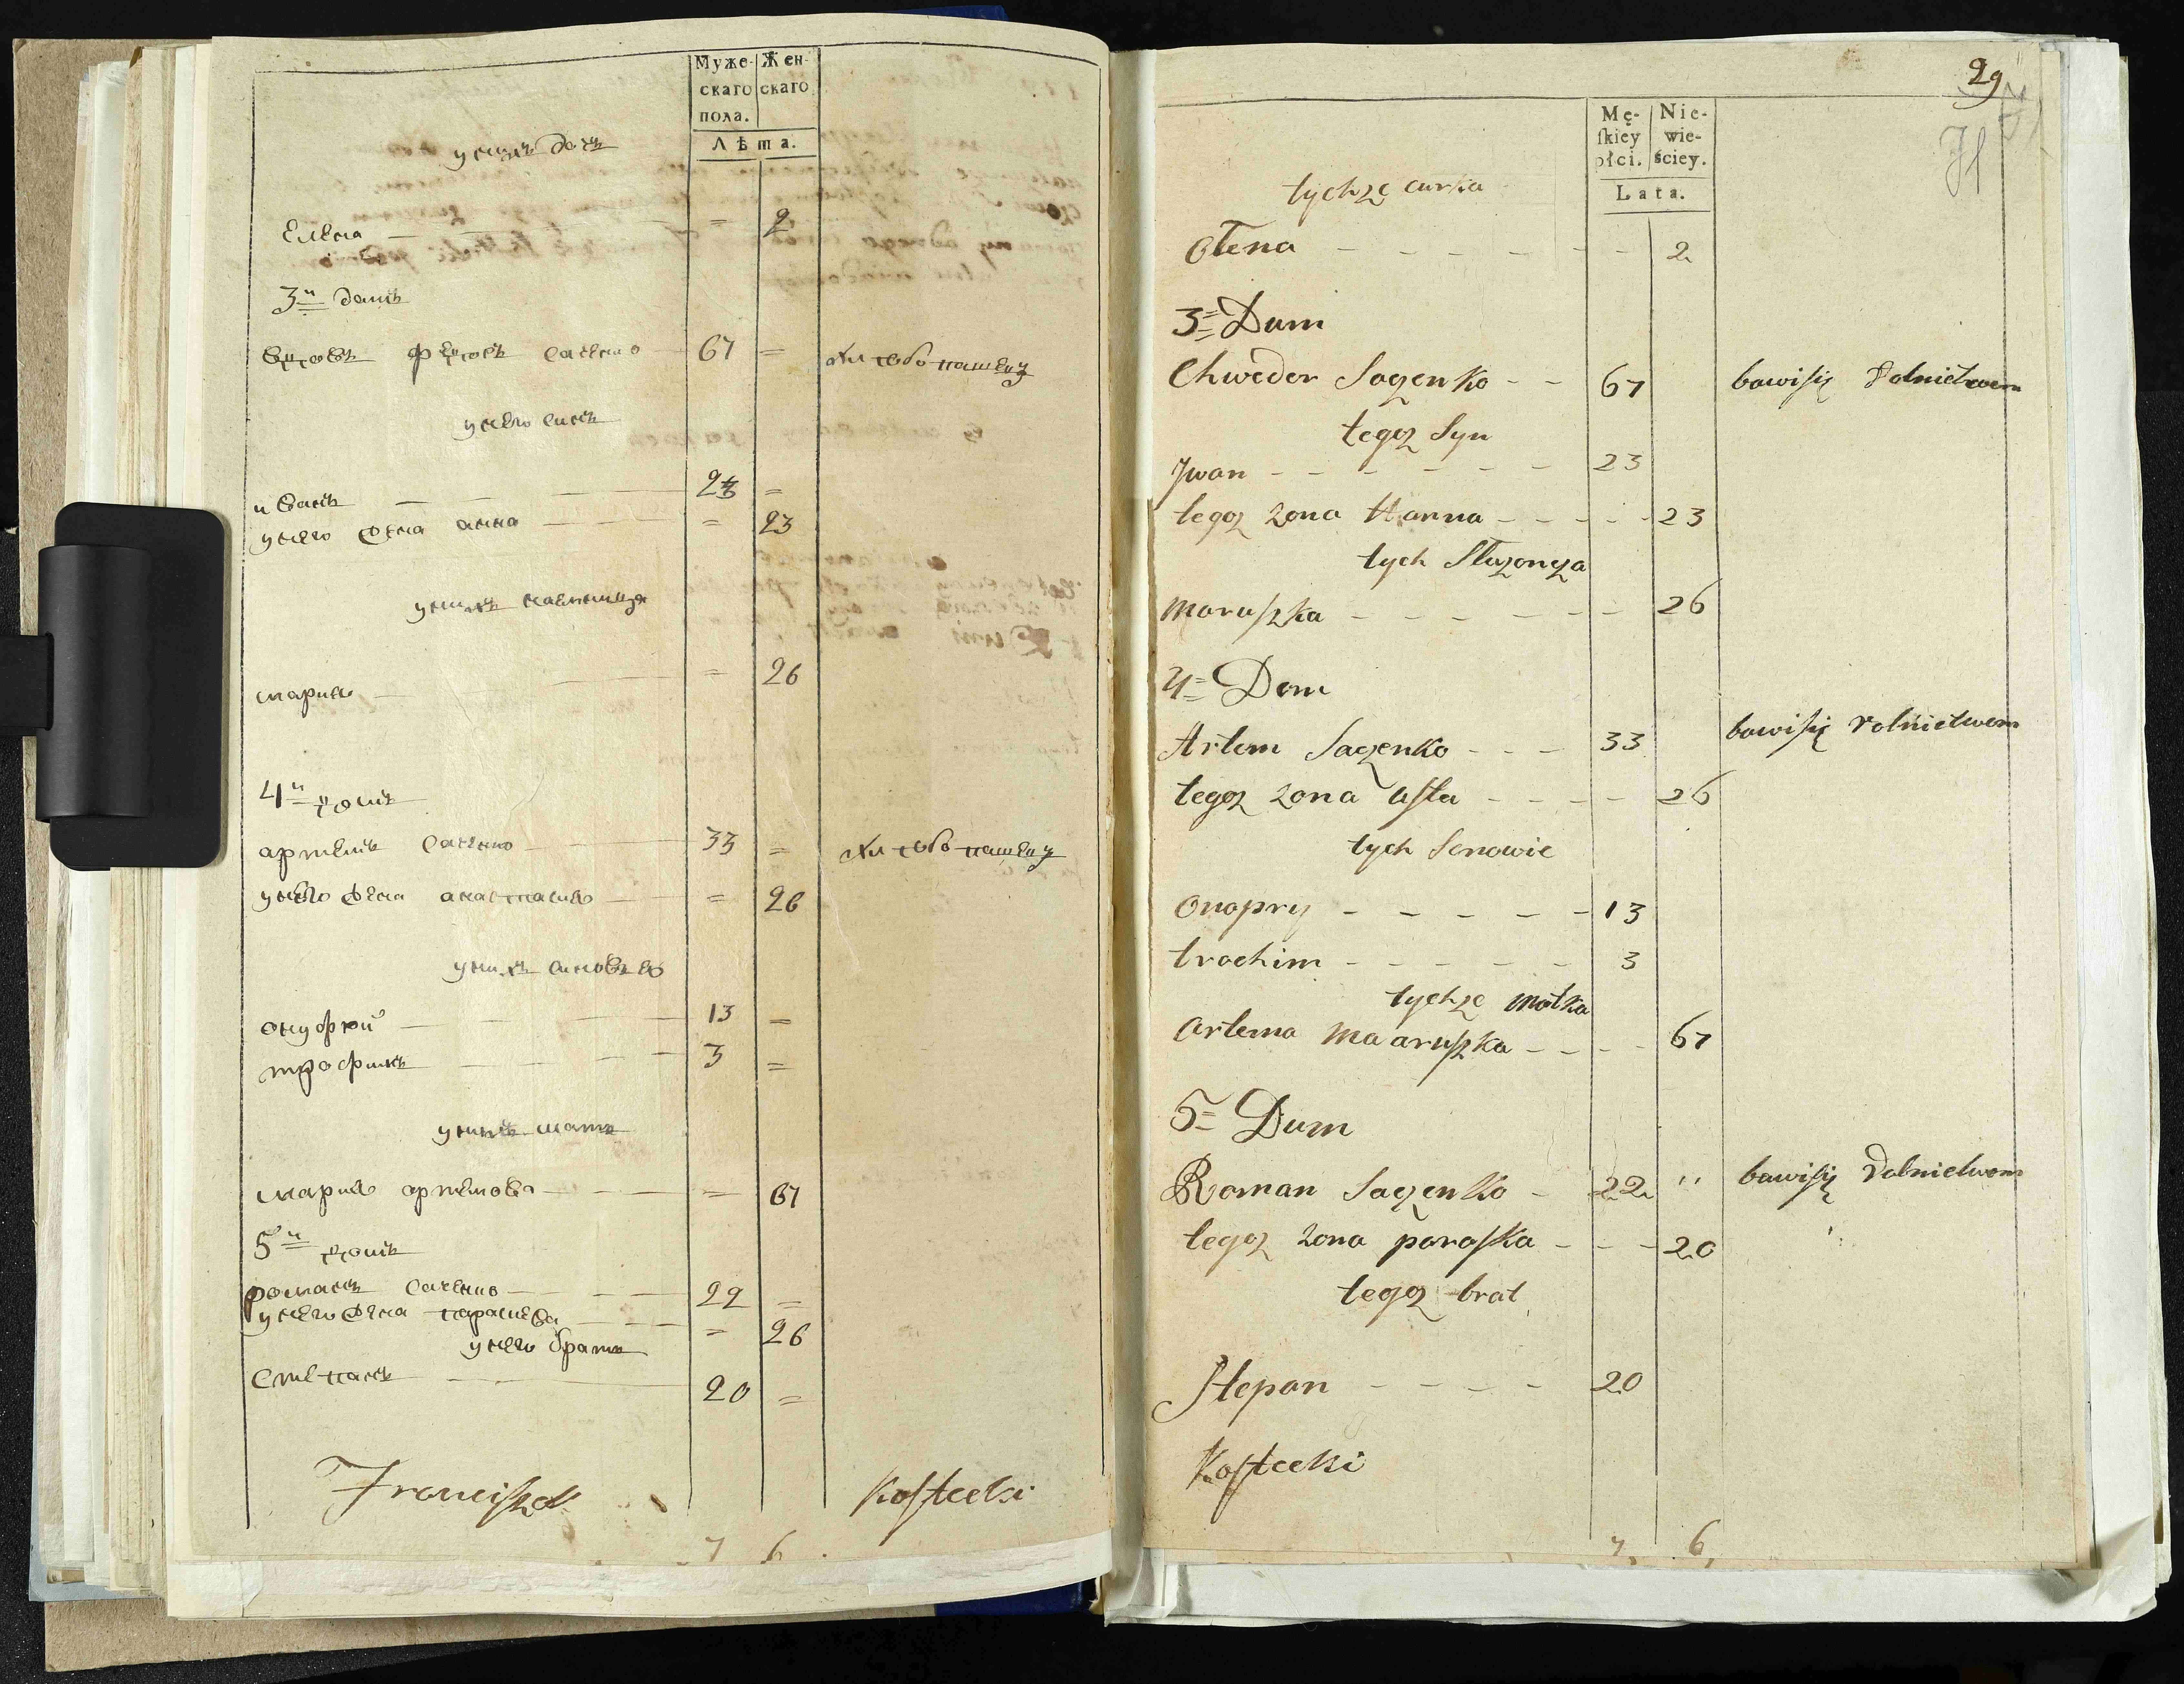 Муже- Жен-
скаго скаго
пола.
Лѣта.
у нихъ дочь
Елена — = 2
3й домъ
вдовъ Федоръ Саченко 67 = хлѣбопашецъ
у него синъ
иванъ — 23 =
у него жена анна — = 23
у нихъ
мария — = 26
4й домъ
артемъ Саченко — 33 = хлѣбопашецъ
у него жена анастасия — = 26
у нихъ синовья
онуфрюй — 13 =
трофимъ — 3 =
у нихъ мать
мария артемова — = 67
5й домъ
романъ Саченко — 22 =
у него жена парасцева — = 26
у него братъ
Степанъ — 20 =
Franciszek Kostecki
7 6
29
Mę- Nie-
skiey wie-
płci. ściey.
Lata.
tychże curka
Ołena - - - - - - 2
3= Dum
Chweder Saczenko - - 67 bawisię Rolnictwem
tegoz Syn
Jwan - - - - - - 23
tegoz zona Hanna - - - - - 23
tych Służonca
Maruszka - - - - - - 26
4= Dom
Artem Saczenko - - - 33 bawisię rolnictwem
tegoz zona asta - - - - 26
tych Senowie
Onopry - - - - - - 13
trochim - - - - - - 3
tychze matka
artema Maaruszka - - - - 67
5= Dum
Roman Saczenko - 22 " bawisię Rolnictwem
tegoz zona paraska - - - 20
tegoz brat
Stepan - - - - - 20
Kostecki
7 6